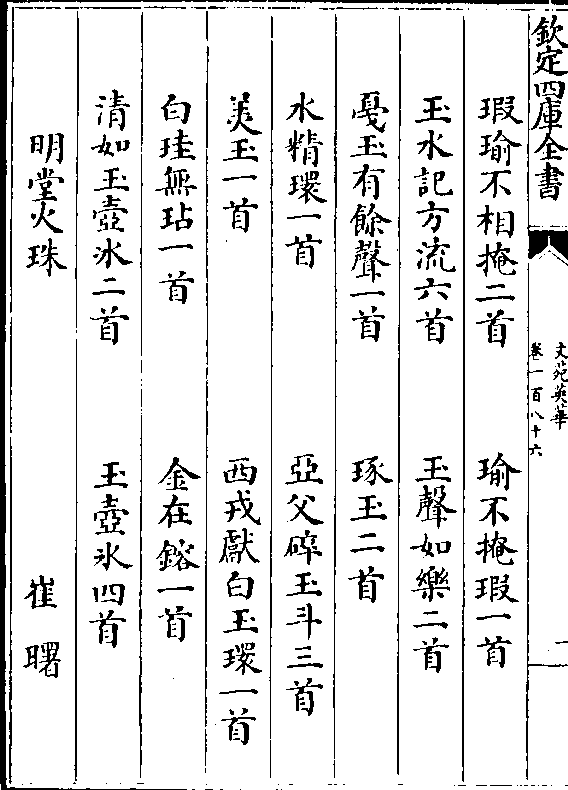 欽定四庫全書
文苑英華
卷一百八十六
瑕瑜不相掩二首 瑜不掩瑕一首
玉水記方流六首 玉聲如樂二首
戞玉有餘聲一首 琢玉二首
水精環一首 亞父碎玉斗三首
美玉一首 西戎獻白玉環一首
白珪無玷一首 金在鎔一首
清如玉壺氷二首 玉壺氷四首
明堂火珠 崔曙